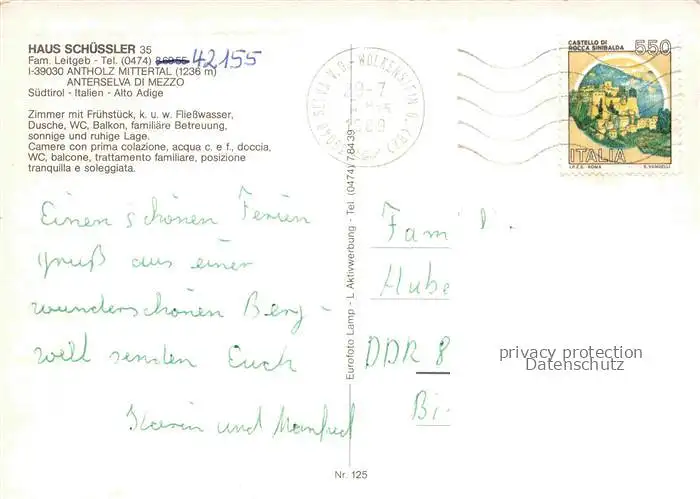 HAUS SCHÜSSLER 35
Fam. Leitgeb - Tel. (0474) 86955 42155
I-39030 ANTHOLZ MITTERTAL (1236 m)
ANTERSELVA DI MEZZO
Südtirol - Italien - Alto Adige
Zimmer mit Frühstück, k. u. w. Fließwasser,
Dusche, WC, Balkon, familiäre Betreuung,
sonnige und ruhige Lage.
Camere con prima colazione, acqua c. e f., doccia,
WC, balcone, trattamento familiare, posizione
tranquilla e soleggiata.
Einen schönen Ferien
gruß aus einer
wunderschönen Berg-
welt senden Euch
Karin und Manfred
Eurofoto Lamp - L Aktivwerbung - Tel. (0474) 78439
Nr. 125
SELVA V.G. - WOLKENSTEIN G.
CASTELLO DI
ROCCA SINIBALDA
550
ITALIA
I.P.Z.S. ROMA
E. VANGELLI
Famil
Hube
DDR 8
Bi
privacy protection
Datenschutz